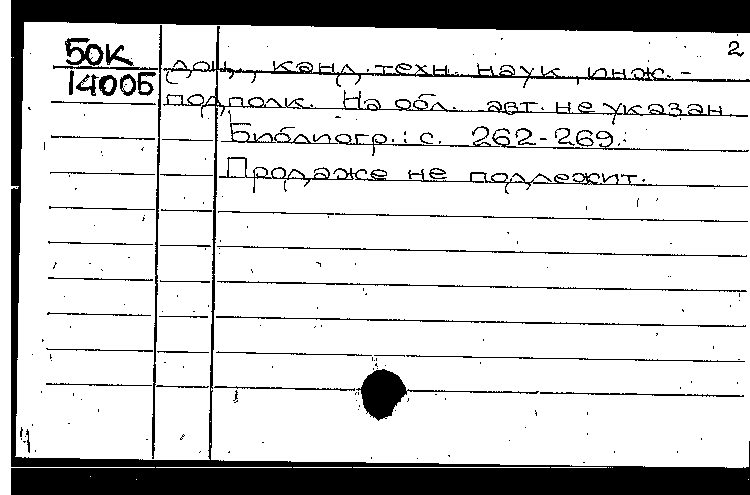 2
БОК
14005
доц., канд. техн. наук, инж.-
подполк. На обл. авт. не указан.
Библиогр.: с. 262-269.
Продаже не подлежит.